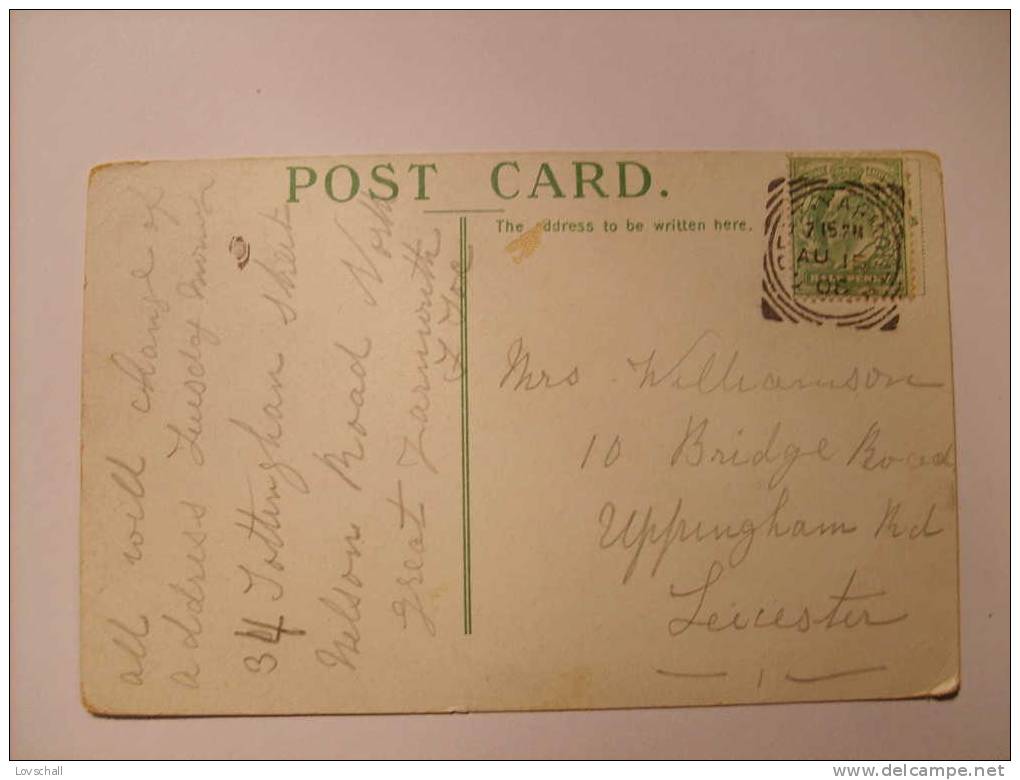 POST CARD.
The address to be written here.
7 15 PM
AU 15
06
HALF PENNY
all will change of
address Tuesday
34 Tottingham Street
Nilson Road North
Great Yarmouth
Mrs Williamson
10 Bridge Road
Uppingham Rd
Leicester
Lovschall
www.delcampe.net